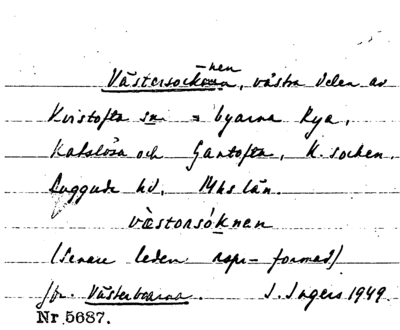 Västersocknen, västra delen av
Kvistofta sn = byarna Rya,
Katslösa och Gantofta, K. socken.
Luggude hd, Mhs län.
västorsåknen
(Senare leden rspr-formad)
Jfr. Västerboarna. I. Ingers 1949.
Nr 5687.